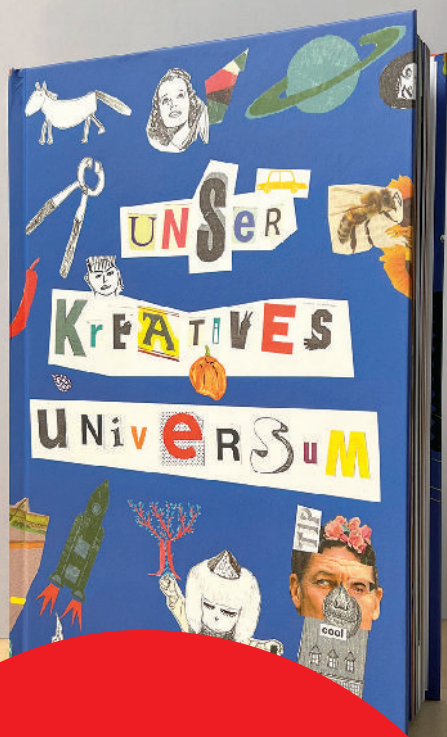 UNSeR
KrEATiVES
UNiveRSuM
cool